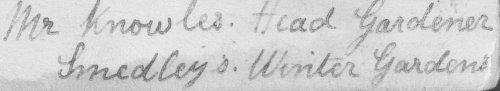 Mr Knowles. Head Gardener
Smedley's. Winter Gardens